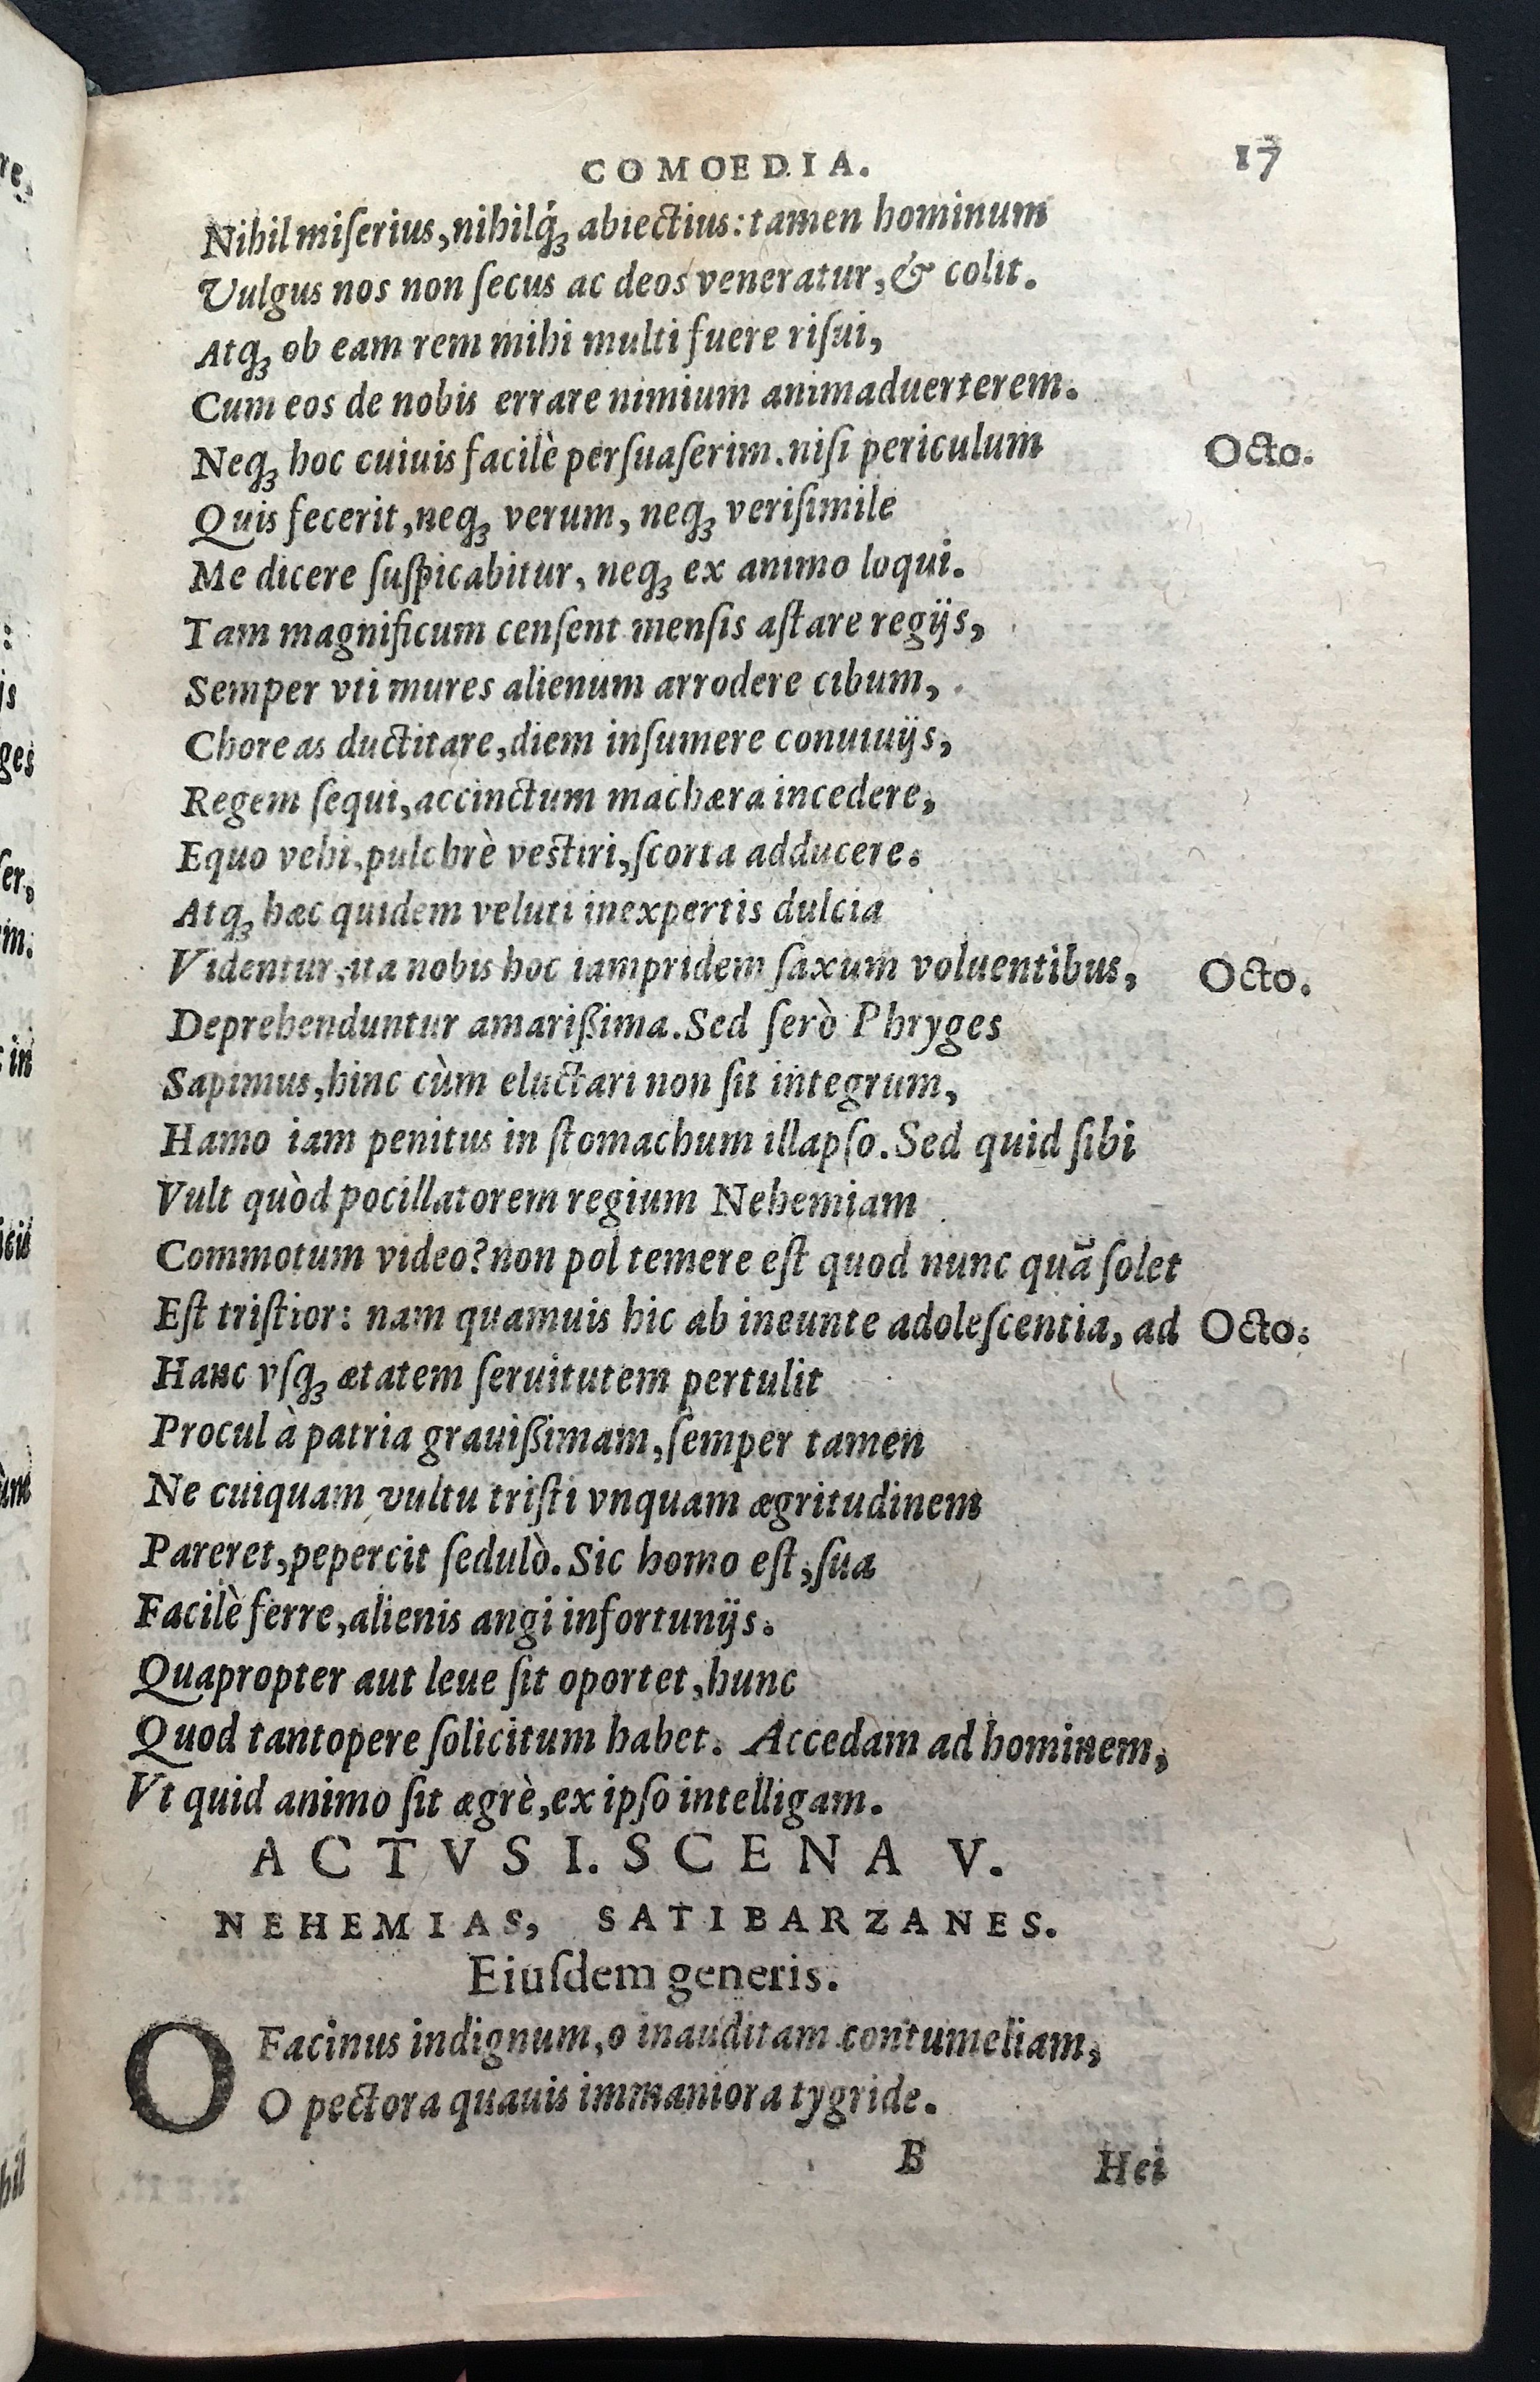 COMOEDIA. 17
Nihil miſerius, nihilq́ꝫ abiectius: tamen hominum
Vulgus nos non ſecus ac deos veneratur, & colit.
Atqꝫ ob eam rem mihi multi fuere riſui,
Cum eos de nobis errare nimium animaduerterem.
Neqꝫ hoc cuiuis facilè perſuaſerim. niſi periculum Octo.
Quis fecerit, neqꝫ verum, neqꝫ veriſimile
Me dicere ſuſpicabitur, neqꝫ ex animo loqui.
Tam magnificum cenſent menſis aſtare regijs,
Semper vti mures alienum arrodere cibum,
Choreas ductitare, diem inſumere conuiuijs,
Regem ſequi, accinctum machæra incedere,
Equo vehi, pulchrè veſtiri, ſcorta adducere.
Atqꝫ hæc quidem veluti inexpertis dulcia
Videntur, ita nobis hoc iampridem ſaxum voluentibus, Octo.
Deprehenduntur amarißima. Sed ſerò Phryges
Sapimus, hinc cùm eluctari non ſit integrum,
Hamo iam penitus in ſtomachum illapſo. Sed quid ſibi
Vult quòd pocillatorem regium Nehemiam
Commotum video? non pol temere eſt quod nunc quã ſolet
Eſt triſtior: nam quamuis hic ab ineunte adoleſcentia, ad Octo.
Hanc vſqꝫ ætatem ſeruitutem pertulit
Procul à patria grauißimam, ſemper tamen
Ne cuiquam vultu triſti vnquam ægritudinem
Pareret, pepercit ſedulò. Sic homo eſt, ſua
Facilè ferre, alienis angi infortunijs.
Quapropter aut leue ſit oportet, hunc
Quod tantopere ſolicitum habet. Accedam ad hominem,
Vt quid animo ſit ægrè, ex ipſo intelligam.
ACTVS I. SCENA V.
NEHEMIAS, SATIBARZANES.
Eiuſdem generis.
O Facinus indignum, o inauditam contumeliam,
O pectora quauis immaniora tygride.
B Hei